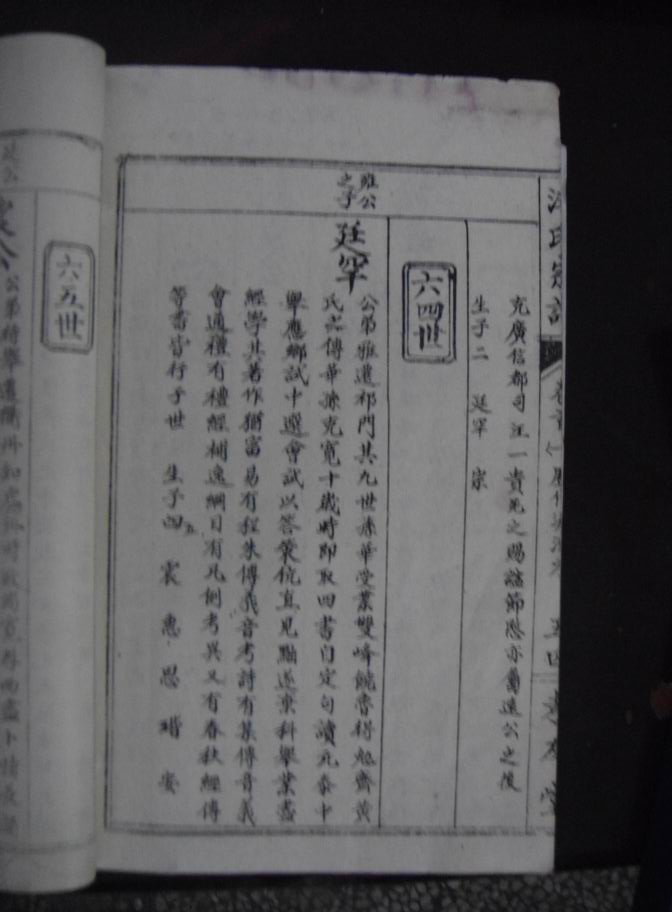 充廣信都司江一貴死之賜諡節愍亦屬遠公之後
生子二 廷罕 宗
六四世
雅公
之子
廷罕
公弟雅遷祁門其九世孫華受業雙峰饒魯得勉齋黃
氏之傳華孫克寬十歲時即取四書自定句讀元泰中
舉應鄉試中選會試以答策伉直見黜遂棄科舉業盡
經學其著作猶富易有程朱傳義音考詩有集傳音義
會通禮有禮經補逸綱目有凡例考異又有春秋經傳
等書皆行于世 生子四 五 宸 惠 思 瑨 安
六五世